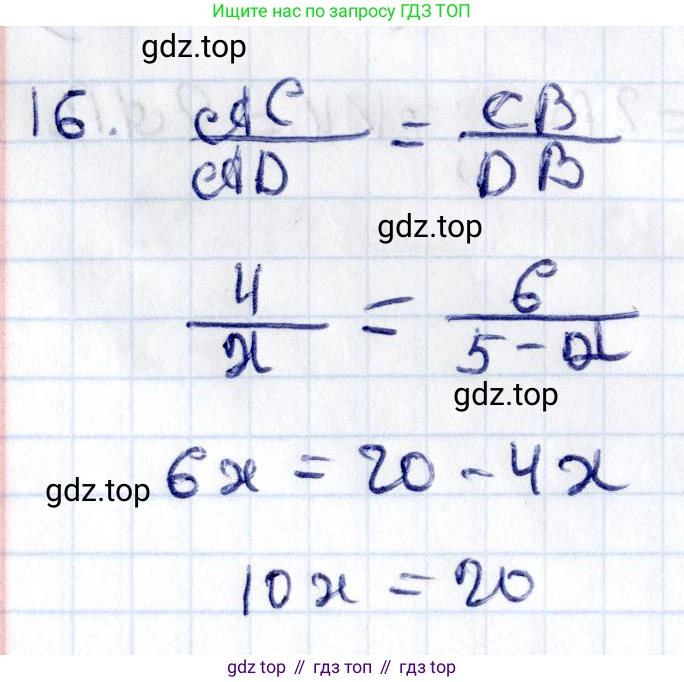 Ищите нас по запросу ГДЗ ТОП
gdz.top
16. AC/AD = CB/DB
gdz.top
4/x = 6/(5-x)
gdz.top
6x = 20 - 4x
gdz.top
10x = 20
gdz.top // гдз топ // gdz top